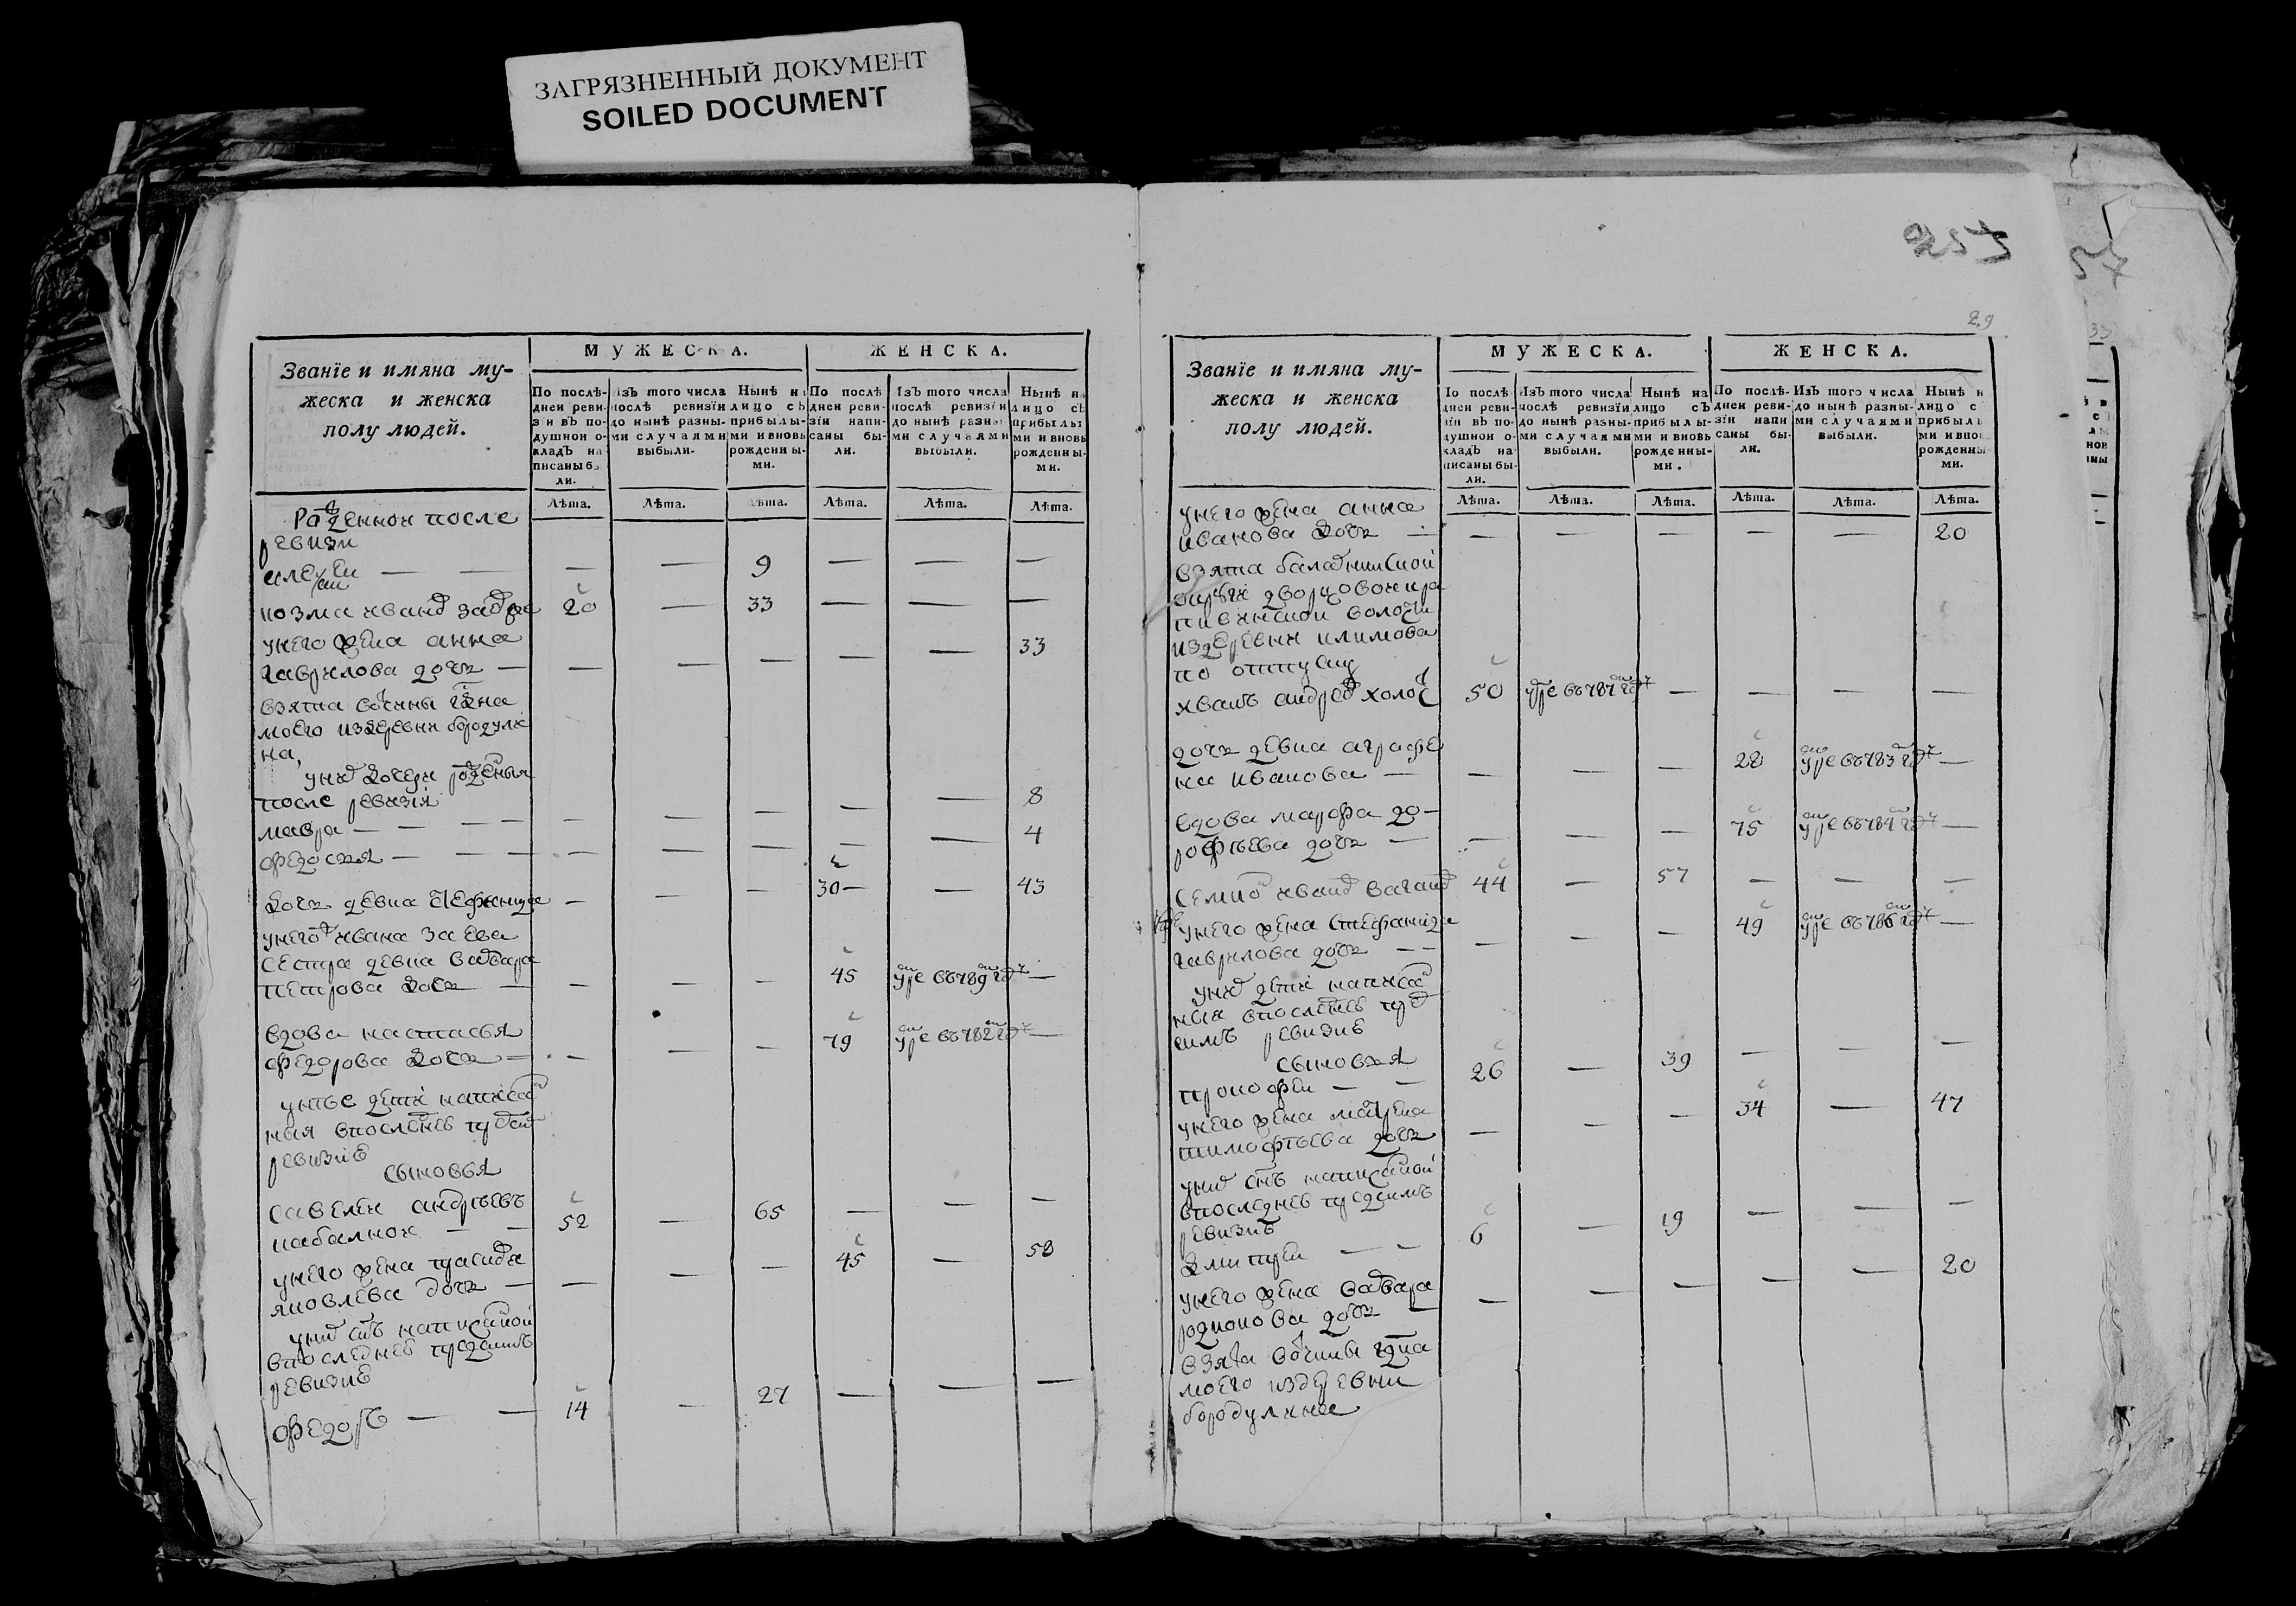 ЗАГРЯЗНЕННЫЙ ДОКУМЕНТ
SOILED DOCUMENT
Званїе и имяна му-
жеска и женска
полу людей.
МУЖЕСКА.
ЖЕНСКА.
По послѣ-
дней реви-
зіи въ по-
душной о-
кладЪ на
писаны бы
ли.
Изъ того числа
послѣ ревизїи
до нынѣ разны-
ми случаями
выбыли.
Нынѣ на
лицо сЪ
прибылы-
ми и вновь
рожденны-
ми.
По послѣ
дней реви-
зїи напи-
саны бы-
ли.
Изъ того числа
послѣ ревизїи
до нынѣ разны
ми случаями
выбыли.
Нынѣ на
лицо сЪ
прибылы
ми и вновь
рожденны-
ми.
Лѣта. Лѣта. Лѣта. Лѣта. Лѣта. Лѣта.
после
ревизи
— — — 9 — — —
козма иванов 20 — 33 — — —
у него жена анна
гаврилова дочь — — — — — — 33
взята
моего из деревни бородули
на,
у них дочери рожденныя
после ревизїи
мавра — — — — — — — — 8
федосья — — — — — — — — 4
дочь девка — — — 30 — 43
у него ивана
сестра девка варвара
петрова дочь — — — — 45 умре въ 789 году —
вдова настасья
федорова дочь — — — — 79 умре въ 782 году —
у нее дети написан
ныя в последней пред сим
ревизиѣ
сыновья
савелеи андрѣевъ
— — 52 — 65 — — —
у него жена
яковлева дочь — — — — 45 — 58
у них сынъ написанной
в последней пред симъ
ревизиѣ
федоръ — — 14 — 27 — — —
253
29
Званїе и имяна му-
жеска и женска
полу людей.
МУЖЕСКА.
ЖЕНСКА.
По послѣ-
дней реви-
зїи въ по-
душной о-
кладЪ на
писаны бы-
ли.
ИзЪ того числа
послѣ ревизїи
до нынѣ разны-
ми случаями
выбыли.
Нынѣ на
лицо сЪ
прибылы-
ми и вновь
рожденны-
ми.
По послѣ-
дней реви-
зїи напи-
саны бы-
ли.
ИзЪ того числа
до нынѣ разны-
ми случаями
выбыли.
Нынѣ н
лицо с
прибылы
ми и внов
рожденны
ми.
Лѣта. Лѣта. Лѣта. Лѣта. Лѣта. Лѣта.
у него жена анна
иванова дочь — — — — — — 20
взята
волости
из деревни климова
по отпуску
иванъ андреев 50 умре въ 787 году — — — —
дочь девка аграфе
на иванова — — — — 28 умре въ 783 году —
вдова марфа до-
рофѣева дочь — — — — 75 умре въ 784 году —
иванов 44 — 57 — — —
у него жена степанида
гаврилова дочь — — — — — 49 умре въ 786 году —
у них дети написан
ныя в последнеѣ пред
симъ ревизиѣ
сыновья
прокофеи — — 26 — 39 — — —
у него жена матрена
тимофѣева дочь — — — 34 — 47
у них сынъ написанной
в последнеѣ пред симъ
ревизиѣ
дмитреи — — 6 — 19 — — —
у него жена варвара
родионова дочь — — — — — — 20
взята
моего из деревни
бородулина
57